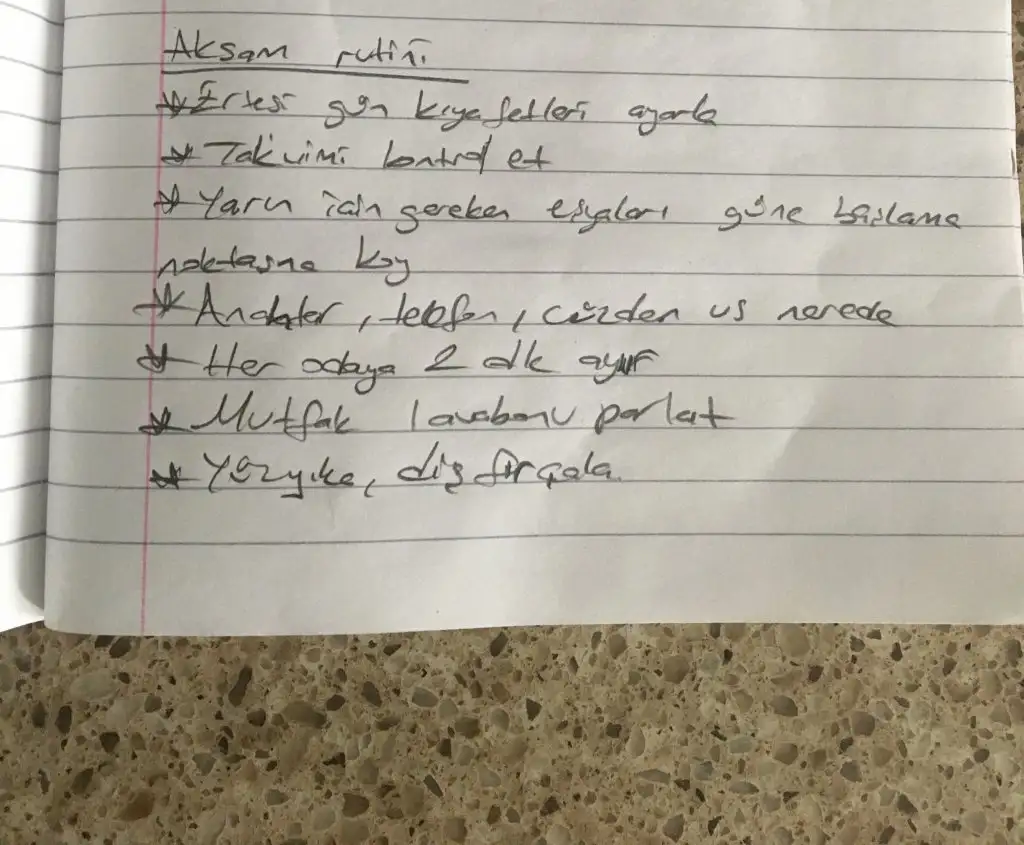 Akşam rutini
* Ertesi gün kıyafetleri ayarla
* Takvimi kontrol et
* Yarın için gereken eşyaları güne başlama
noktasına koy
* Anahtar, telefon, cüzdan vs nerede
* Her odaya 2 dk ayır
* Mutfak lavabonu parlat
* Yüz yıka, diş fırçala.